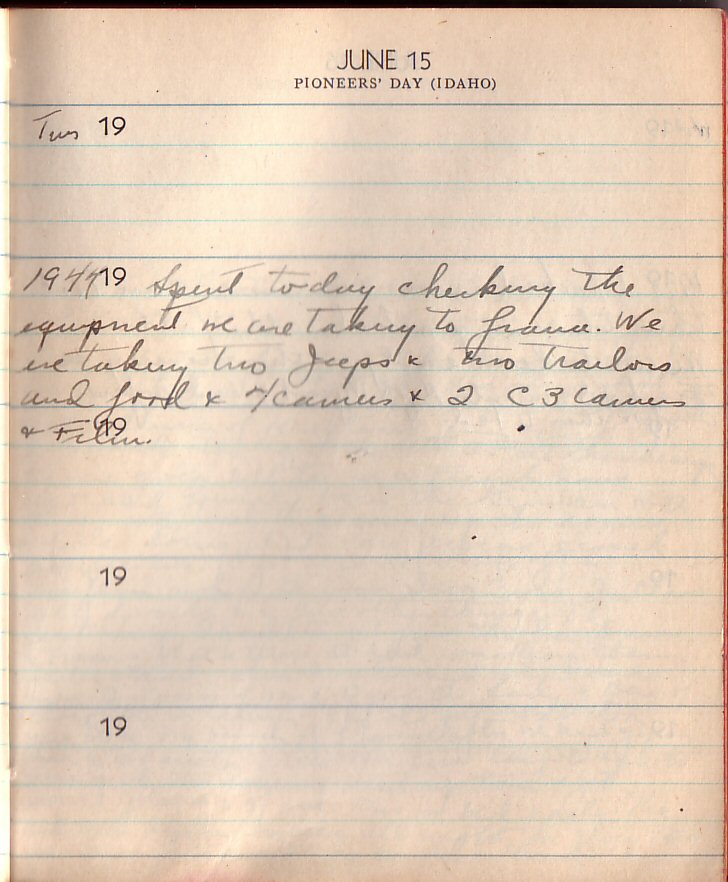 JUNE 15
PIONEERS' DAY (IDAHO)
Tues 19
1944 19 Spent today checking the
equipment we are taking to France. We
are taking two Jeeps & two trailors
and food & cameras & 2 C 3 cameras
& Film. 19
19
19